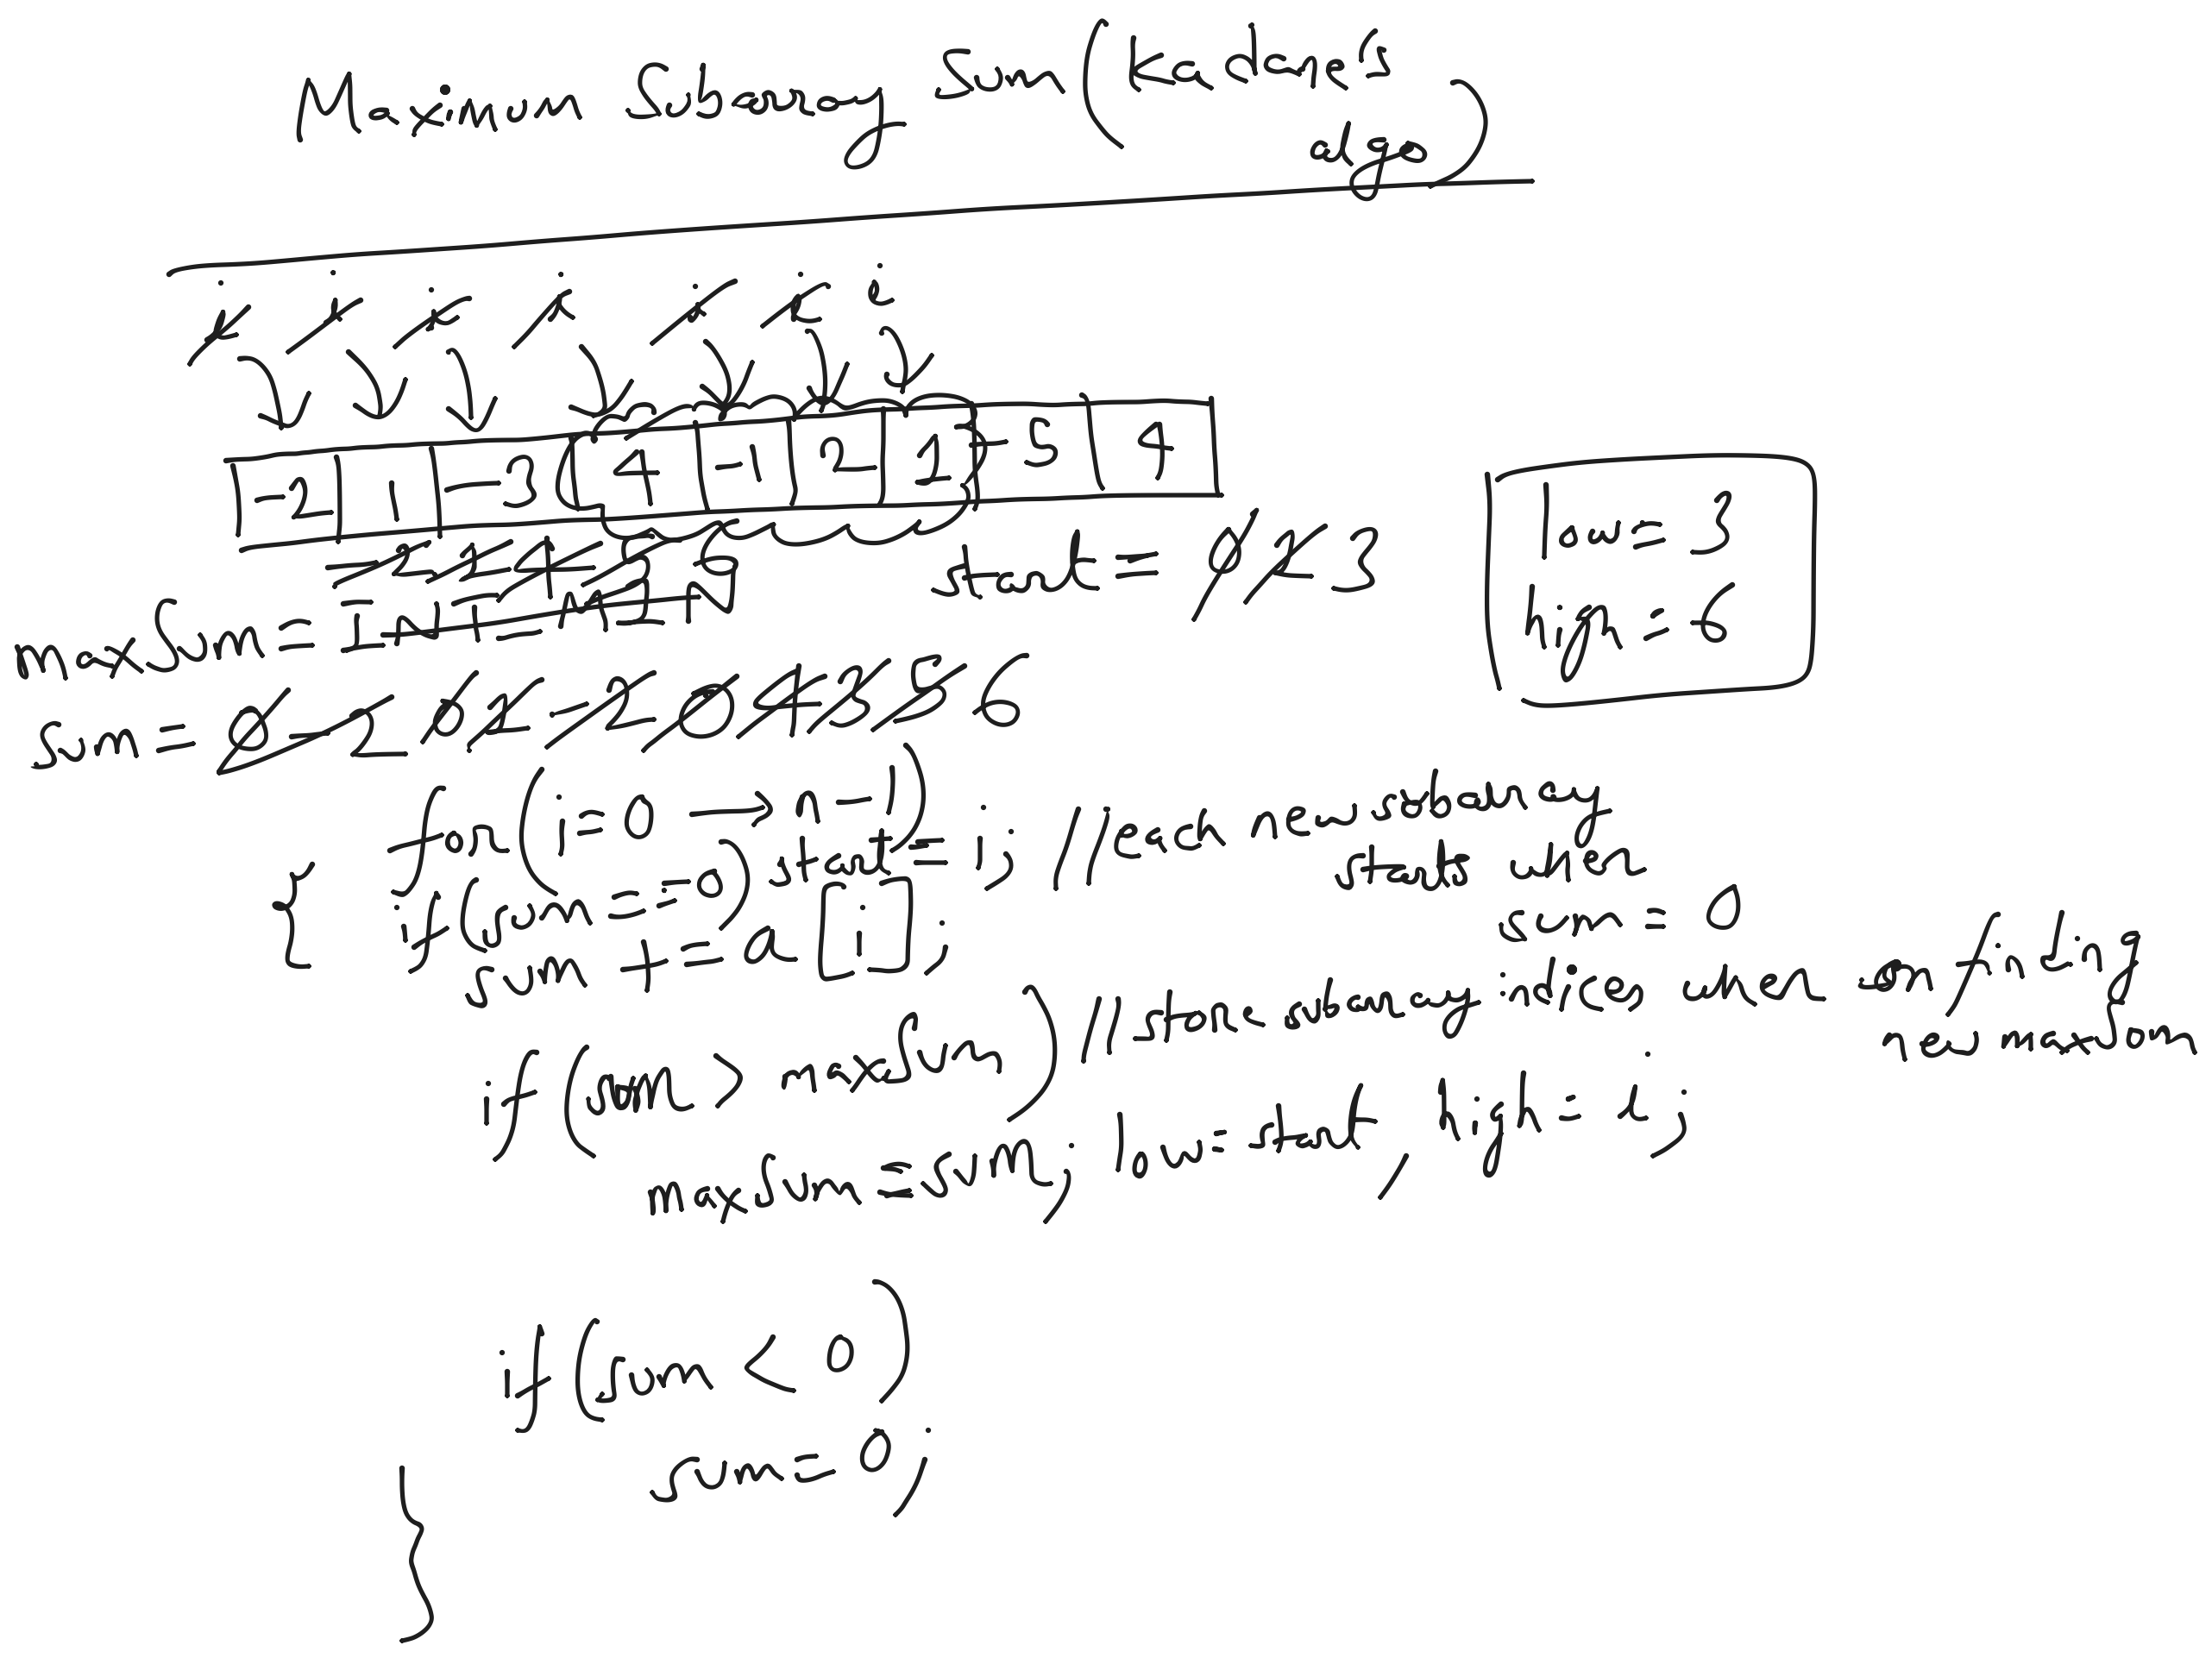 Maximum Subarray Sum (Kadane's
algo)
i i i i i i i
-2 | 1 | -3 | 4 | -1 | 2 | 1 | -5 | 4
low = 3
high = 6
-2 1 4 5 6 start = 0 2 3
maxSum = INT_MIN
sum = 0 -2 0 1 -2 0 4 3 5 6
for (i = 0 -> n-1)
{ if (sum == 0) start = i; // each new subarray
starts when
sum = 0
sum += a[i];
if (sum > maxSum) // store subarray indices when
new maxSum
maxSum = sum; low = start, high = i;
if (sum < 0)
sum = 0;
}